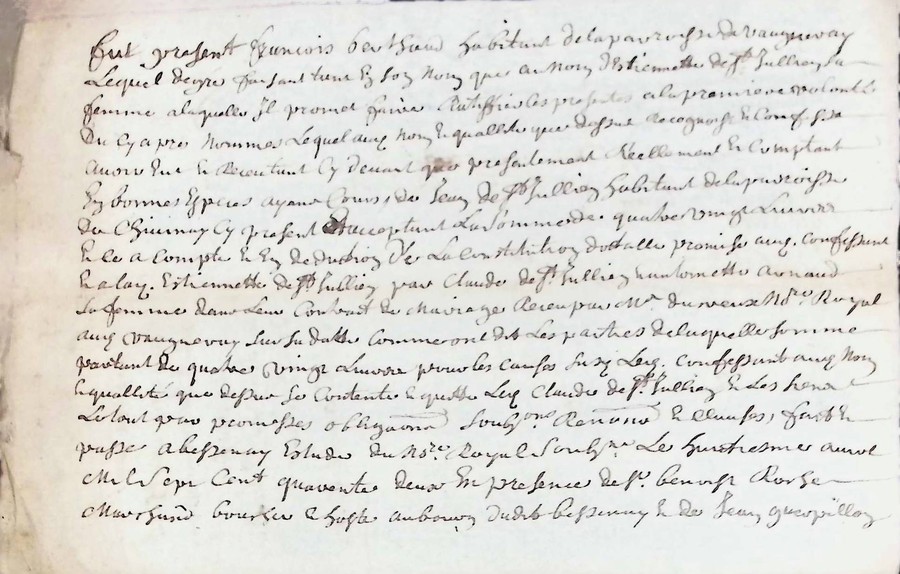 fut present francois berthaud habitant de la parroisse de vaugneray
Lequel de gre faisant tant En son Nom que au Nom d'Estiennette de St Jullien sa
femme a laquelle Il promet faire Rattiffier les presentes a la premiere volonté
Du Cy apres Nommes Lequel aux Nom Et quallite que dessus Recognoist Et Confesse
avoir Eut Et Receu tant Cy devant que presentement Reellement Et Comptant
En bonnes Especes ayant Cours, de Jean de St Jullien habitant de la parroisse
de Chivinay Cy present Et acceptant La Somme de quatre vingt Livres
Et Ce a Compte Et En deduction De La Constitution dottalle promise aud. Confessant
Et a lad. Estiennette de St Jullien par Claude de St Jullien Et antoinette arnaud
Sa femme dans Leur Contrat de Mariage Receu par Me. No.re Royal
aud vaugneray Sur Sa datte Comme ont dit Les parties de laquelle Somme
partant de quatre vingt Livres pour les causes Susd Led. Confessant aud Nom
Et quallité que dessus Se Contente Et quitte Led Claude de St Jullien Et Les Siens
Le tout par promesses obligaōns Soubz.ons Renōns Et Clauses, fait Et
passe a bessenay Estude du No.re Royal Soubz.ne Le huitiesme avril
Mil Sept Cent quarente deux En presence de Sr. benoist
Marchand boucher Et hoste au bourg dudit bessenay Et de Jean